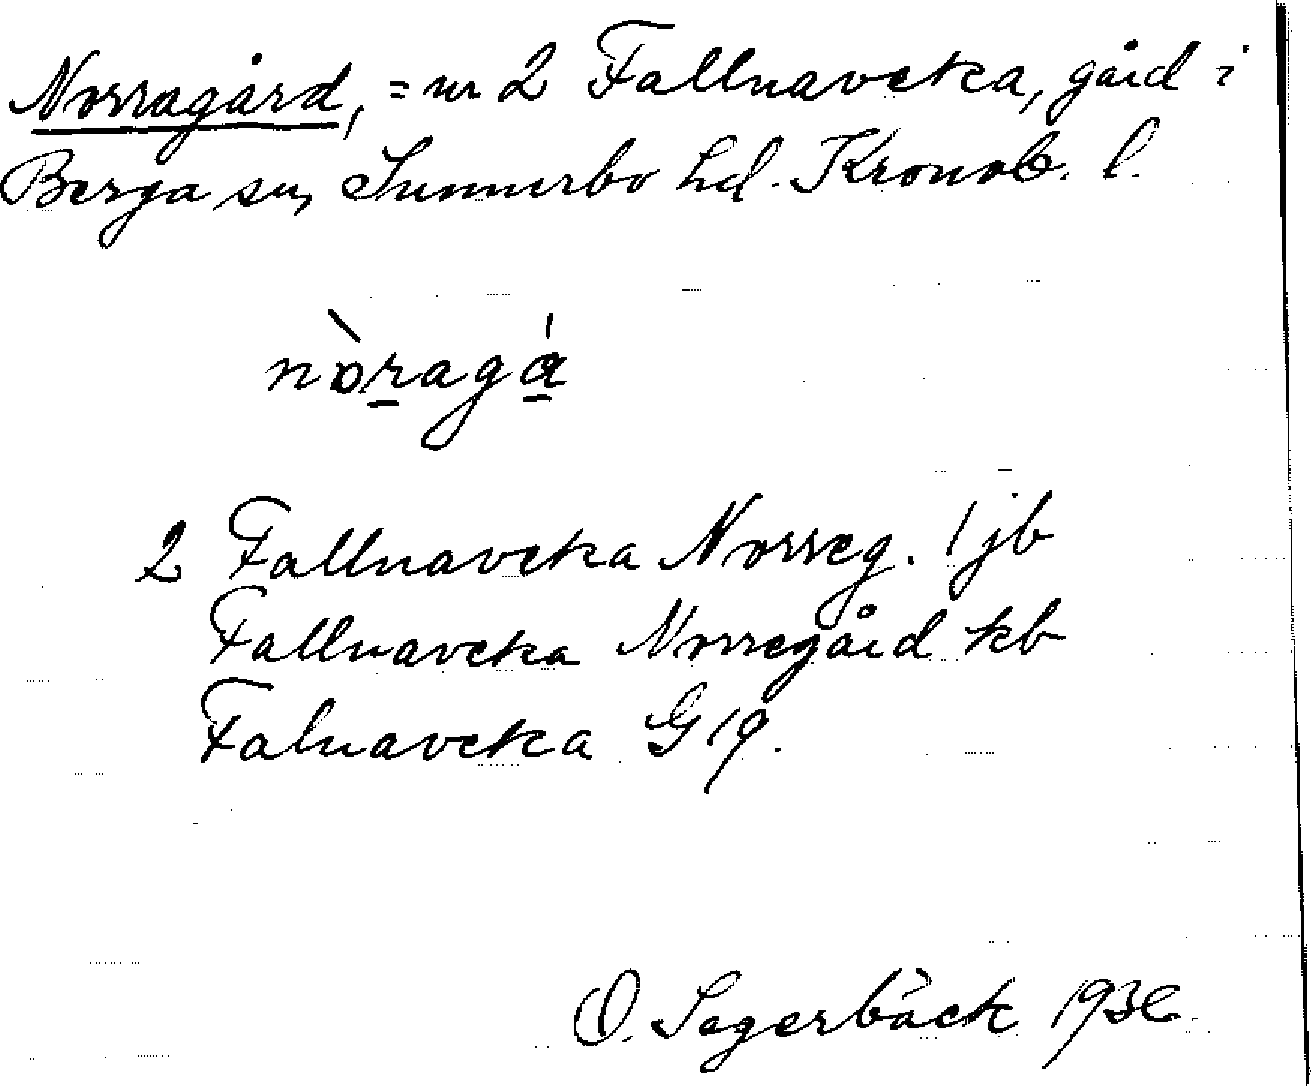 Norragård, = nr 2 Fallnaveka, gård i
Berga sn, Sunnerbo hd. Kronob. l.
nòragá
2 Fallnaveka Norreg. 1 jb
Fallnaveka Norregård kb
Falnaveka G 19.
O. Sagerbäck 1936